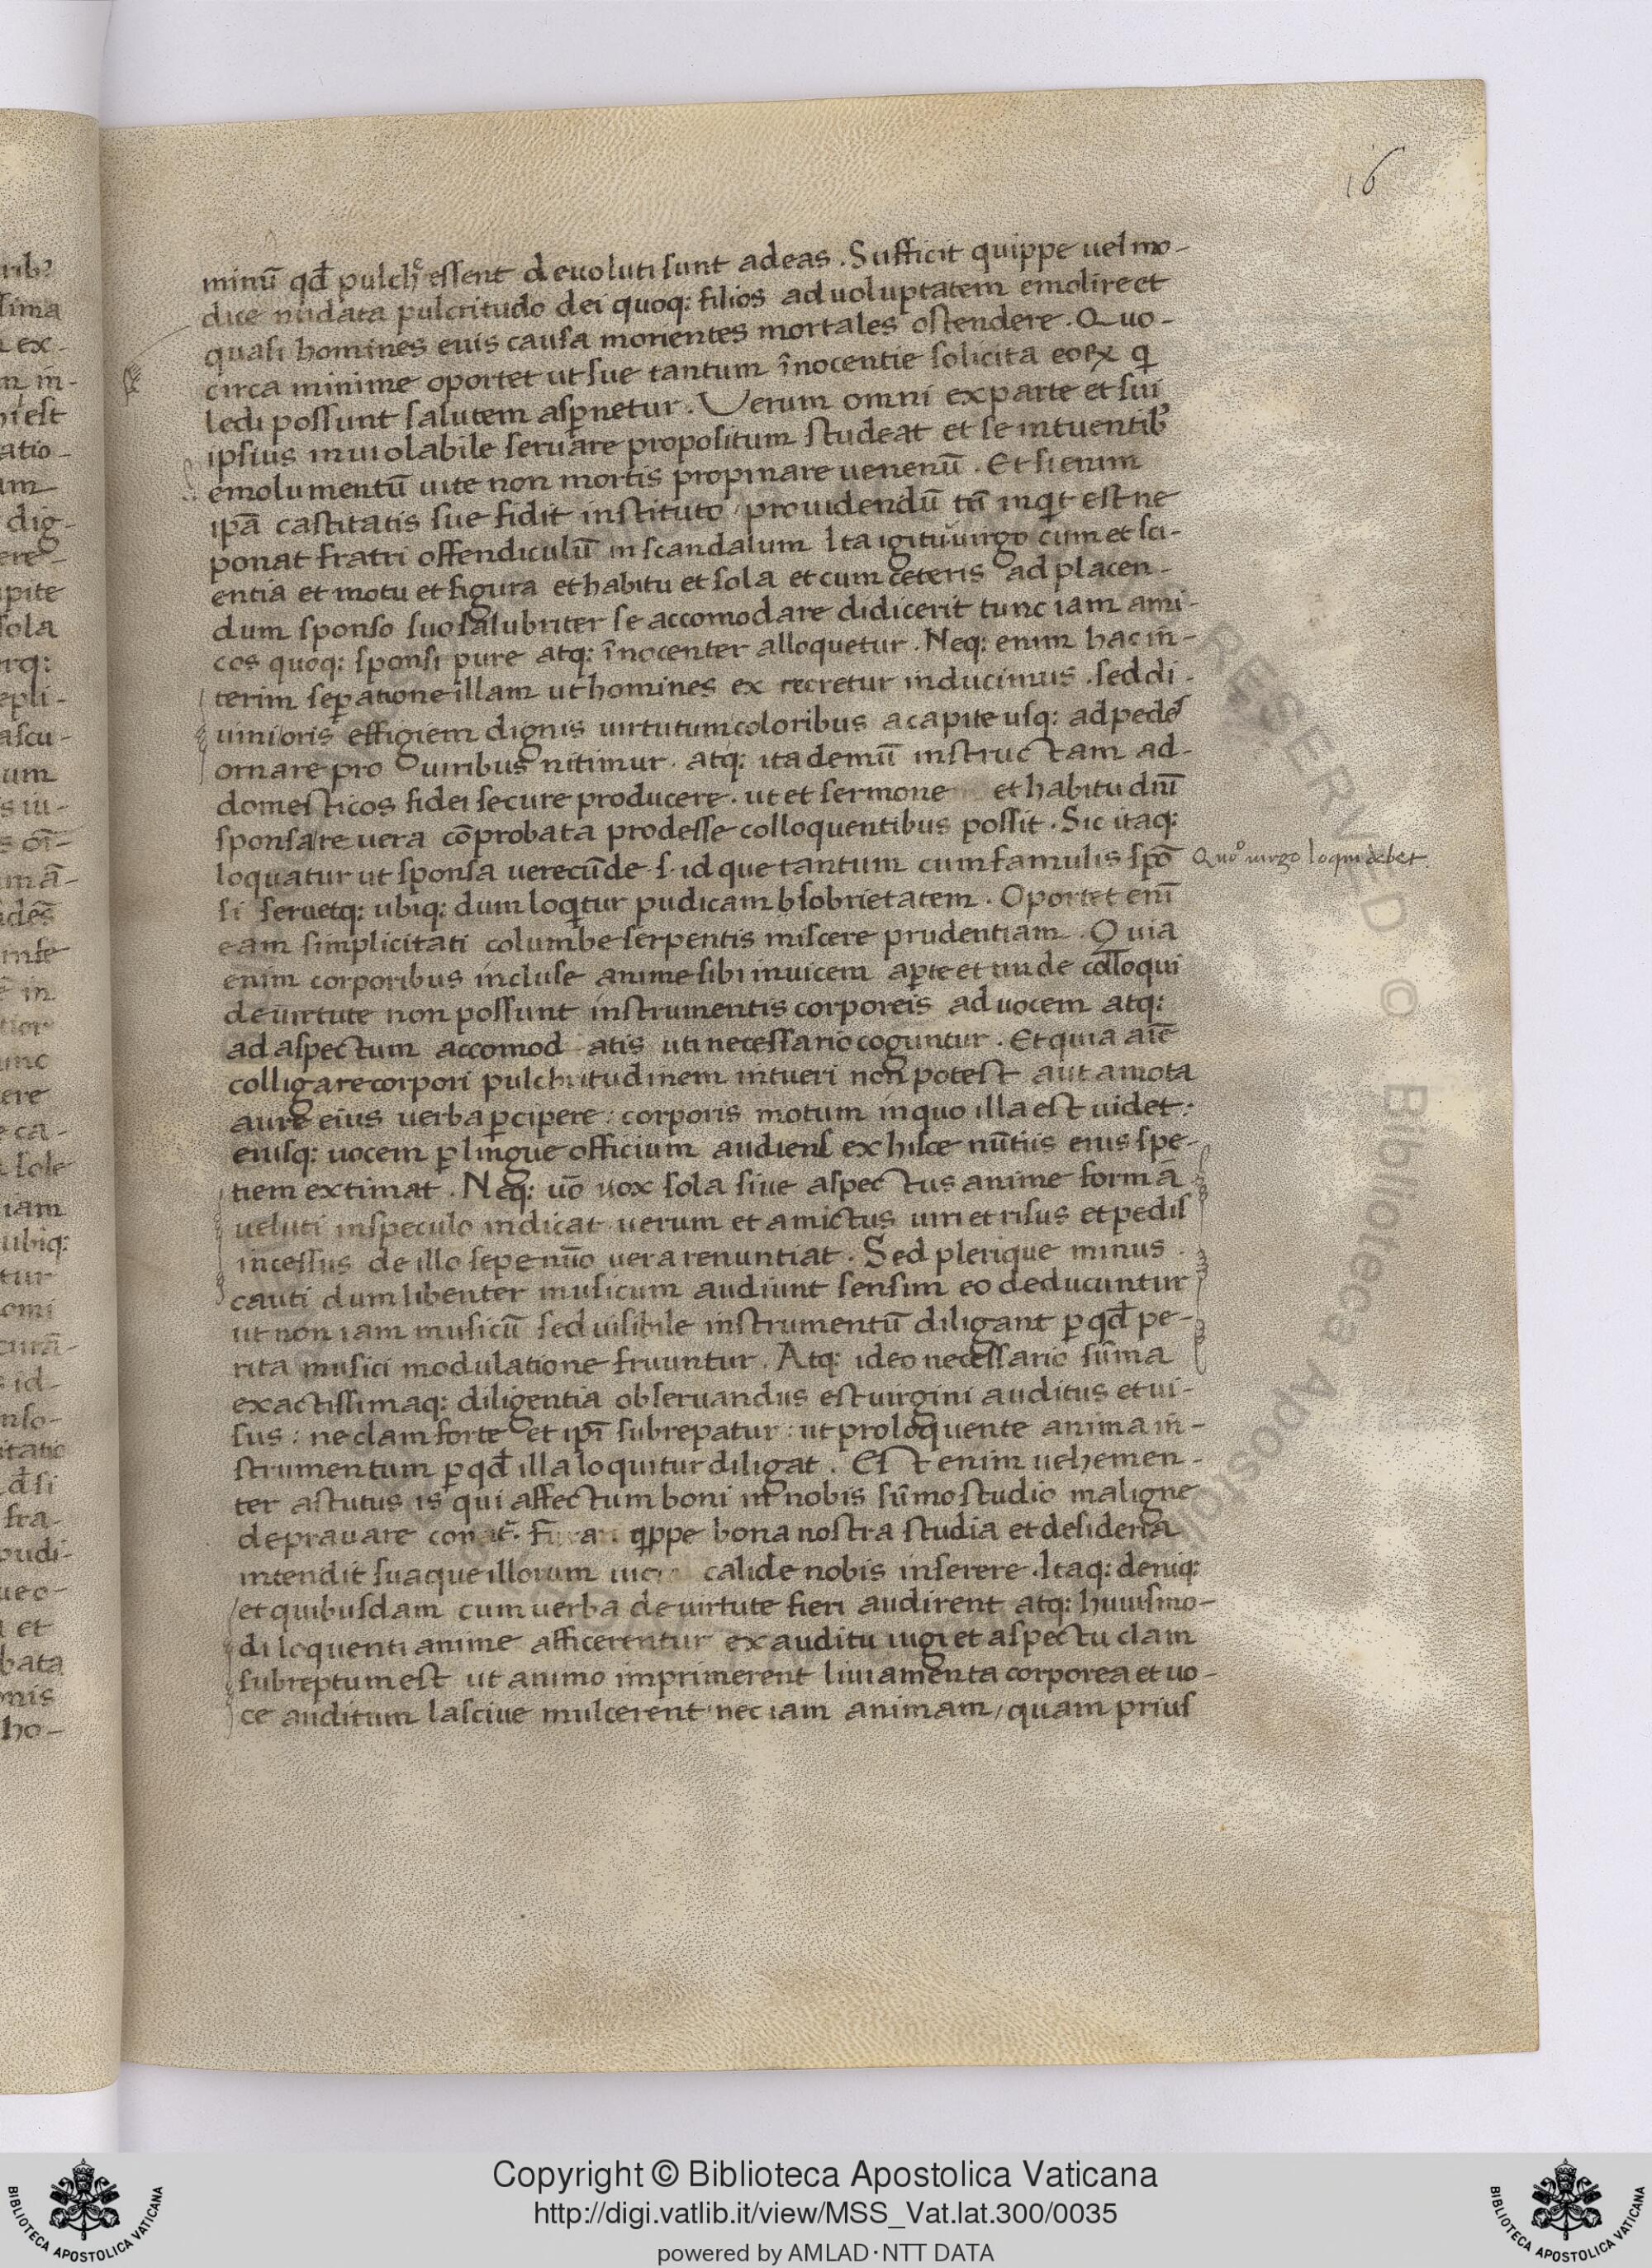 16
minū qd̄ pulch̄e essent deuoluti sunt ad eas. Sufficit quippe uel mo-
dice nudata pulcritudo dei quoq: filios ad uoluptatem emolire et
quasi homines euis causa morientes mortales ostendere. Quo-
circa minime oportet ut sue tantum īnocentie solicita eoꝝ q̄
ledi possunt salutem asꝑnetur. Verum omni ex parte et sui
ipsius inuiolabile seruare propositum studeat et se intuentibꝰ
emolumentū uite non mortis propinare uenenū. Et si enim
ipā castitatis sue fidit instituto / prouidendū tn̄ inqt est ne
ponat fratri offendiculū in scandalum Ita igitu᷑ uirgo cum et sci-
entia et motu et figura et habitu et sola et cum ceteris ad placen-
dum sponso suo salubriter se accomodare didicerit tunc iam ami-
cos quoq: sponsi pure atq: īnocenter alloquetur. Neq: enim hac in-
terim seꝑatione illam ut homines ex recretur inducimus. sed di-
uinioris effigiem dignis uirtutum coloribus a capite usq: ad pedes
ornare pro uiribus nitimur. atq: ita demū instructam ad
domesticos fidei secure producere. ut et sermone et habitu dn̄i
sponsa re uera cōprobata prodesse colloquentibus possit. Sic itaq:
loquatur ut sponsa uerecūde .s. id que tantum cum famulis spō
Quo° uirgo loqui debet.
si seruetq: ubiq: dum loqtur pudicam bsobrietatem. Oportet enī
eam simplicitati columbe serpentis miscere prudentiam. Quia
enim corporibus incluse anime sibi inuicem aꝑte et nude colloqui
de uirtute non possunt instrumentis corporeis ad uocem atq:
ad aspectum accomod atis uti necessario coguntur. Et quia aīe
colligare corpori pulchritudinem intueri non potest aut amota
aure eius uerba ꝑcipere: corporis motum in quo illa est uidet:
eiusq: uocem ꝑ lingue officium audiens ex hisce nūtiis eius spe-
tiem extimat. Neq: uō uox sola siue aspectus anime formā
ueluti in speculo indicat uerum et amictus uiri et risus et pedis
incessus de illo sepe nūo uera renuntiat. Sed plerique minus
cauti dum libenter musicum audiunt sensim eo deducuntur
ut non iam musicū sed uisibile instrumentū diligant ꝑ qd̄ pe-
rita musici modulatione fruuntur. Atq: ideo necessario sūma
exactissimaq: diligentia obseruandus est uirgini auditus et ui-
sus: ne clam forte et ipī subrepatur: ut pro loquente anima in-
strumentum ꝑ qd̄ illa loquitur diligat. Est enim uehemen-
ter astutus is qui affectum boni in nobis sūmo studio maligne
deprauare conat᷑. qppe bona nostra studia et desideria
intendit suaque illorum calide nobis inserere. Itaq: deniq:
et quibusdam cum uerba de uirtute fieri audirent atq: huiusmo-
di loquenti anime afficerentur ex auditu iugi et aspectu clam
subreptum est ut animo imprimerent liniamenta corporea et uo-
ce auditum lasciue mulcerent nec iam animam / quam prius
RESERVED © Biblioteca Apostolica
Copyright © Biblioteca Apostolica Vaticana
http://digi.vatlib.it/view/MSS_Vat.lat.300/0035
powered by AMLAD·NTT DATA
BIBLIOTECA APOSTOLICA VATICANA
BIBLIOTECA APOSTOLICA VATICANA